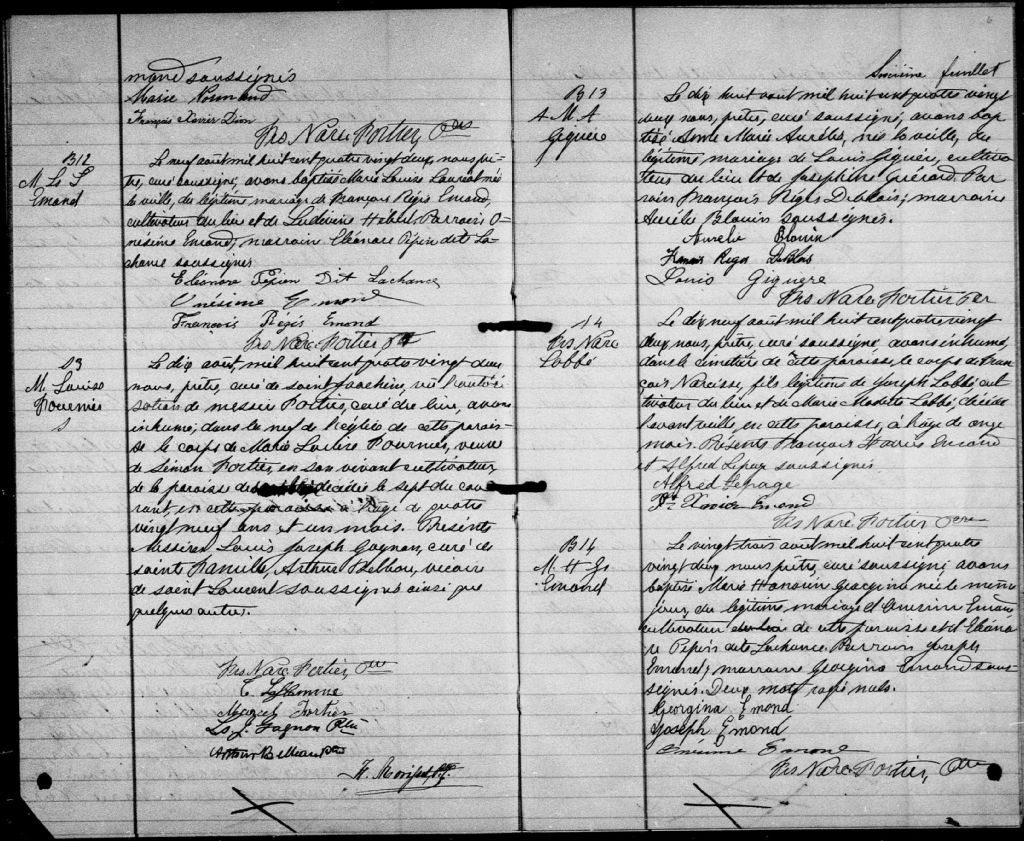 mond soussignés
Marie Normand
François Xavier Dion
Frs Narc Fortier, Ptre
B12
M. Ls. L
Emond
Le neuf août mil huit cent quatre vingt deux, nous prê-
tre, curé soussigné, avons baptisé Marie Louise née
la veille, du légitime mariage de François Régis Emond,
cultivateur du lieu et de Hébert. Parrain O-
nésime Emond, marraine Eléonore Pépin dit La-
chance soussignés
Eléonore Pépin Dit Lachance
Onésime Emond
François Régis Emond
Frs Narc Fortier Ptr
S3
M. Louise
Le dix août, mil huit cent quatre vingt deux
nous, prêtre, curé de saint Joachim, vu l'autori-
sation de messire Fortier, curé du lieu, avons
inhumé, dans la nef de l'église de cette parois-
se le corps de Marie veuve
de Simon Fortier, en son vivant cultivateur,
de la paroisse décédée le sept du cou-
rant, en cette paroisse à l'âge de quatre
vingt neuf ans et un mois. Présents
Messires Louis Joseph Gagnon, curé de
sainte Famille, Arthur Belleau, vicaire
de saint Laurent soussignés ainsi que
quelques autres.
Frs Narc Fortier, Ptre
Marcel Fortier
Ls J. Gagnon Ptre
Arthur Belleau Ptre
6
Sixième feuillet
B13
A M A
Giguère
Le dix huit août mil huit cent quatre vingt
deux nous, prêtre, curé soussigné, avons bap-
tisé Marie Aurélie, née la veille, du
légitime mariage de Louis Giguère, cultiva-
teur du lieu et de Joséphine Guérard. Par-
rain François Régis Deblois; marraine
Aurélie Blouin soussignés.
Aurelie Blouin
Francois Regis Deblois
Louis Giguere
Frs Narc Fortier Ptr
S4
Frs Narc
Labbé
Le dix neuf août mil huit cent quatre vingt
deux, nous, prêtre, curé soussigné avons inhumé,
dans le cimetière de cette paroisse, le corps de Fran-
çois Narcisse, fils légitime de Joseph Labbé cul-
tivateur du lieu et de Marie Labbé, décédé
l'avant veille, en cette paroisse, à l'âge de onze
mois. Présents François Xavier Emond
et Alfred Lepage soussignés
Alfred Lepage
Fr. Xavier Emond
Frs Narc Fortier Ptre
B14
M. H. G.
Emond
Le vingt trois août mil huit cent quatre
vingt deux nous prêtre, curé soussigné avons
baptisé Marie Georgina née le même
jour, du légitime mariage d'Onésime Emond
cultivateur de cette paroisse et d'Eléono-
re Pépin dite Lachance. Parrain Joseph
Emond; marraine Georgina Emond sous-
signés. Deux mots rayés nuls.
Georgina Emond
Joseph Emond
Onésime Emond
Frs Narc Fortier, Ptre